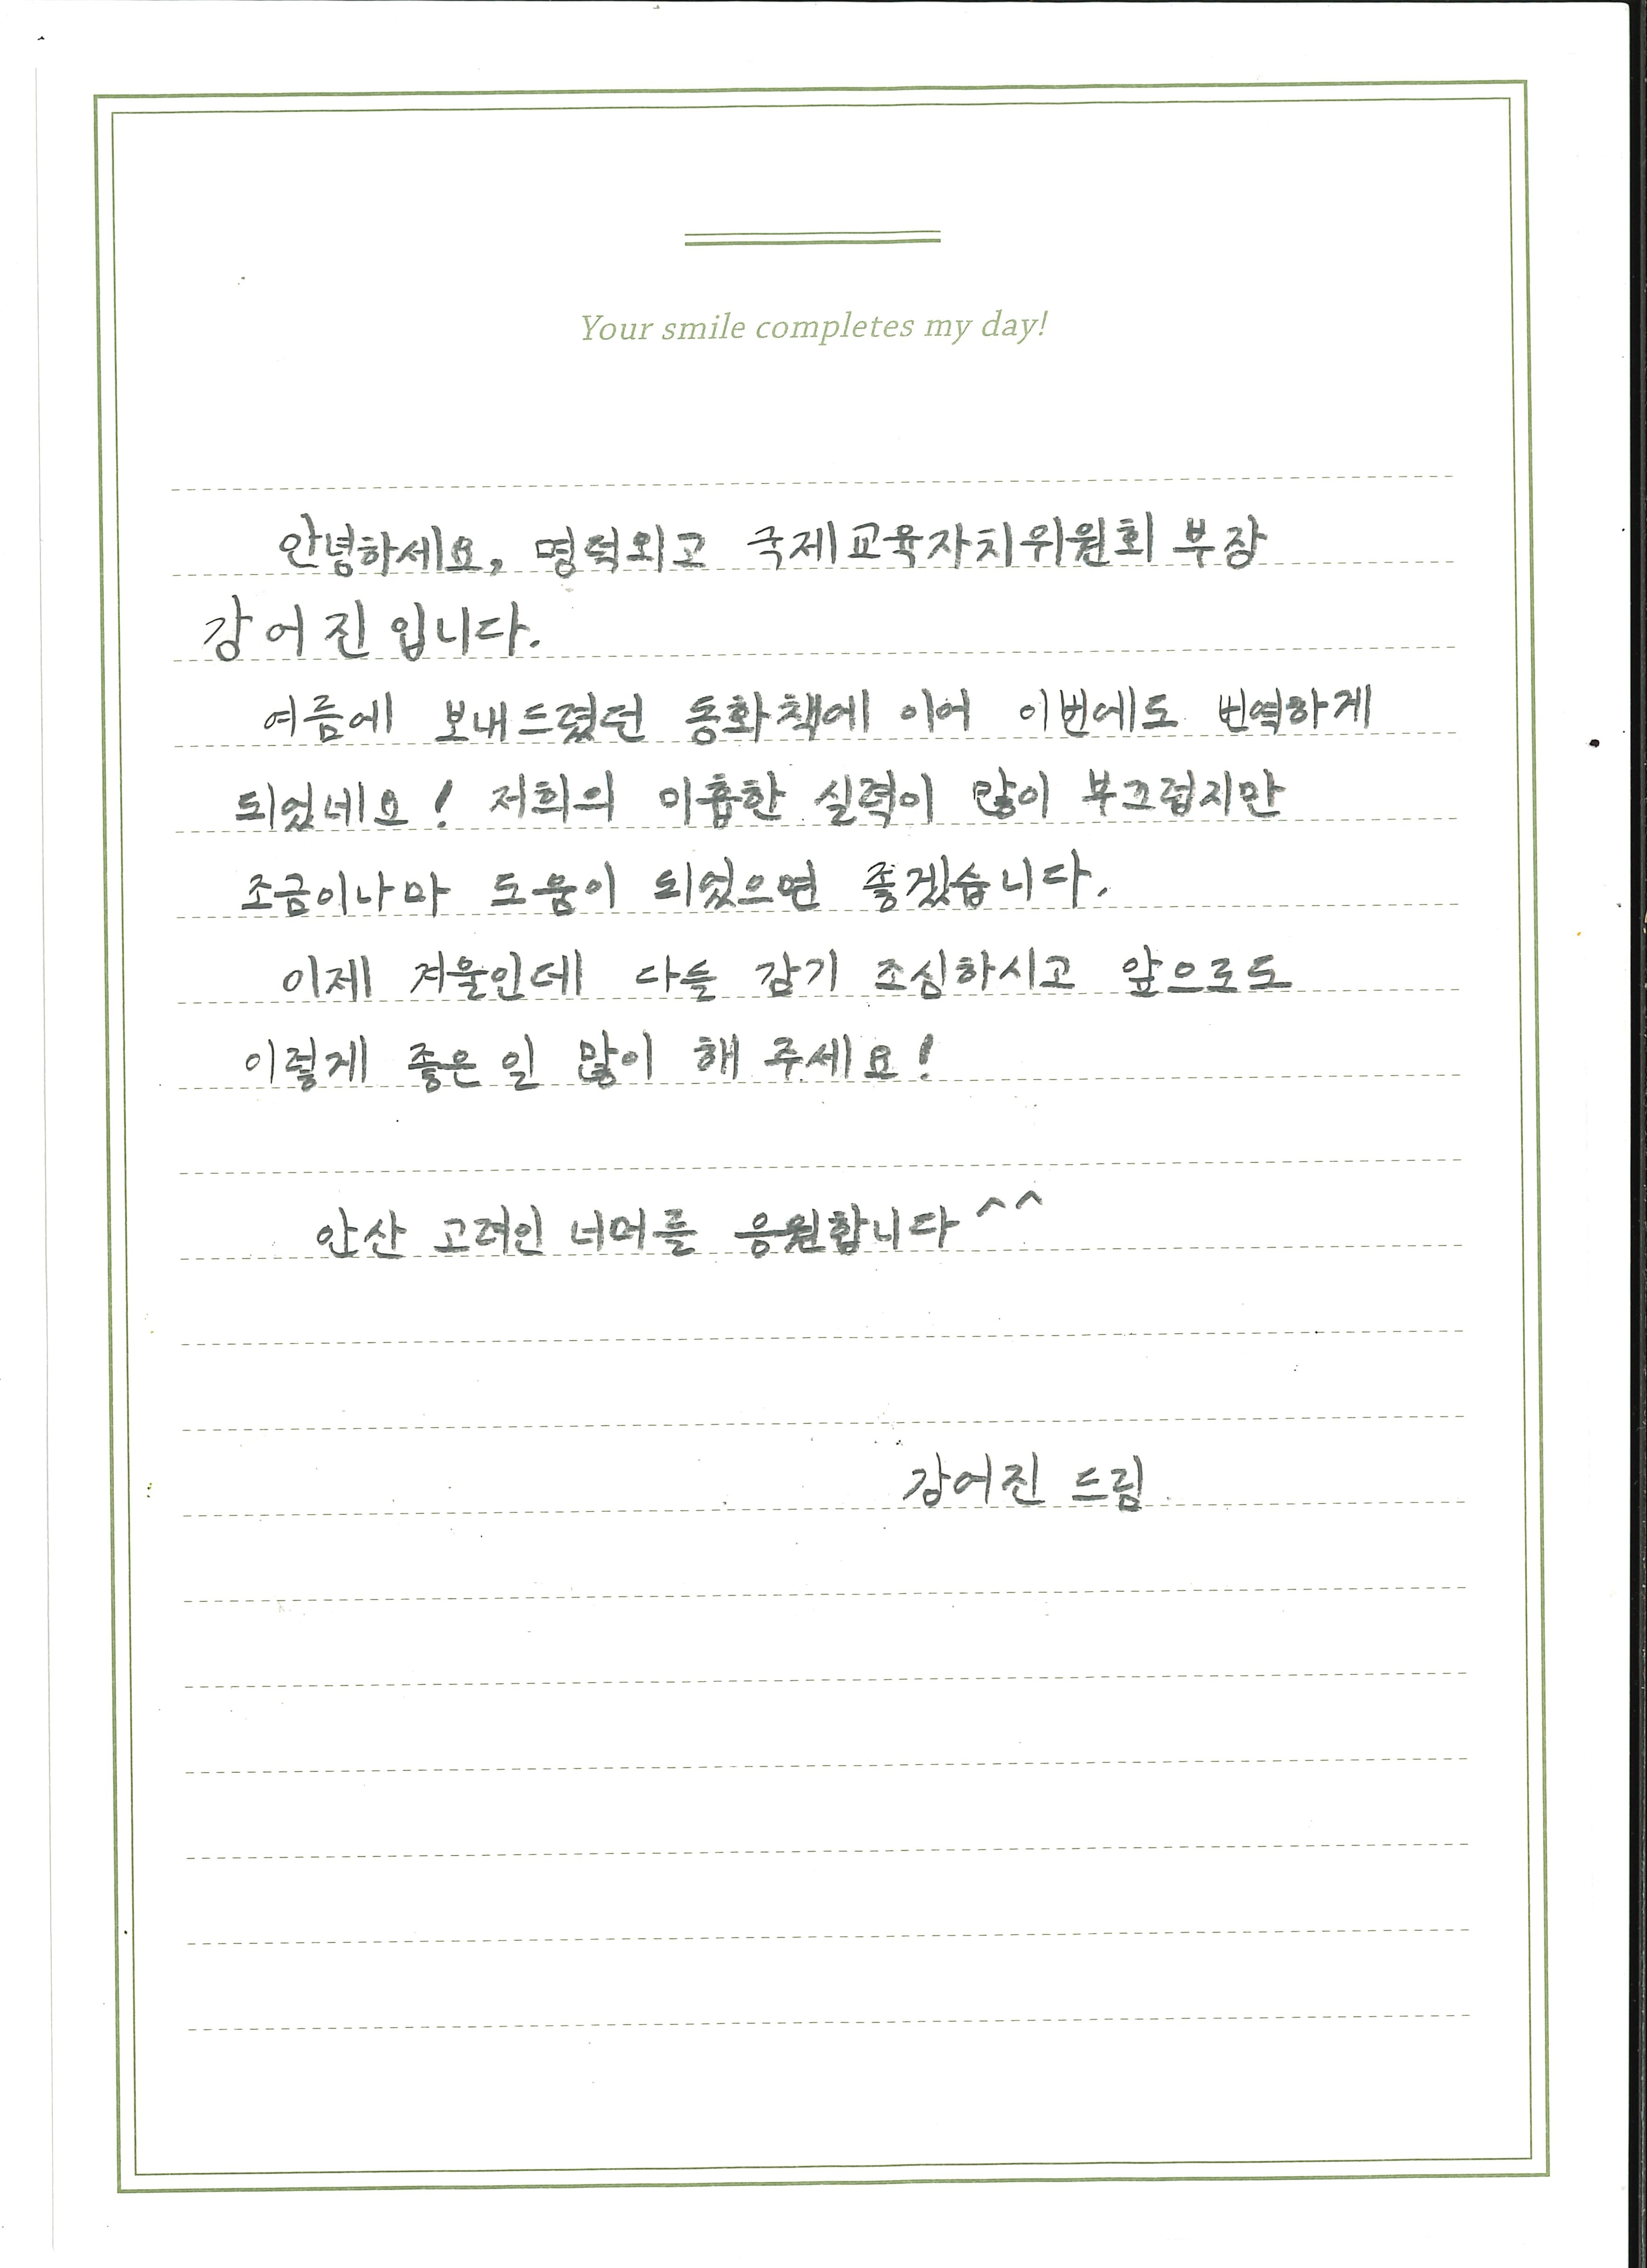 Your smile completes my day!
안녕하세요, 명덕외고 국제교육자치위원회 부장
강어진입니다.
여름에 보내드렸던 동화책에 이어 이번에도 번역하게
되었네요! 저희의 미흡한 실력이 많이 부끄럽지만
조금이나마 도움이 되었으면 좋겠습니다.
이제 겨울인데 다들 감기 조심하시고 앞으로도
이렇게 좋은 일 많이 해 주세요!
안산 고려인 너머를 응원합니다^^
강어진 드림